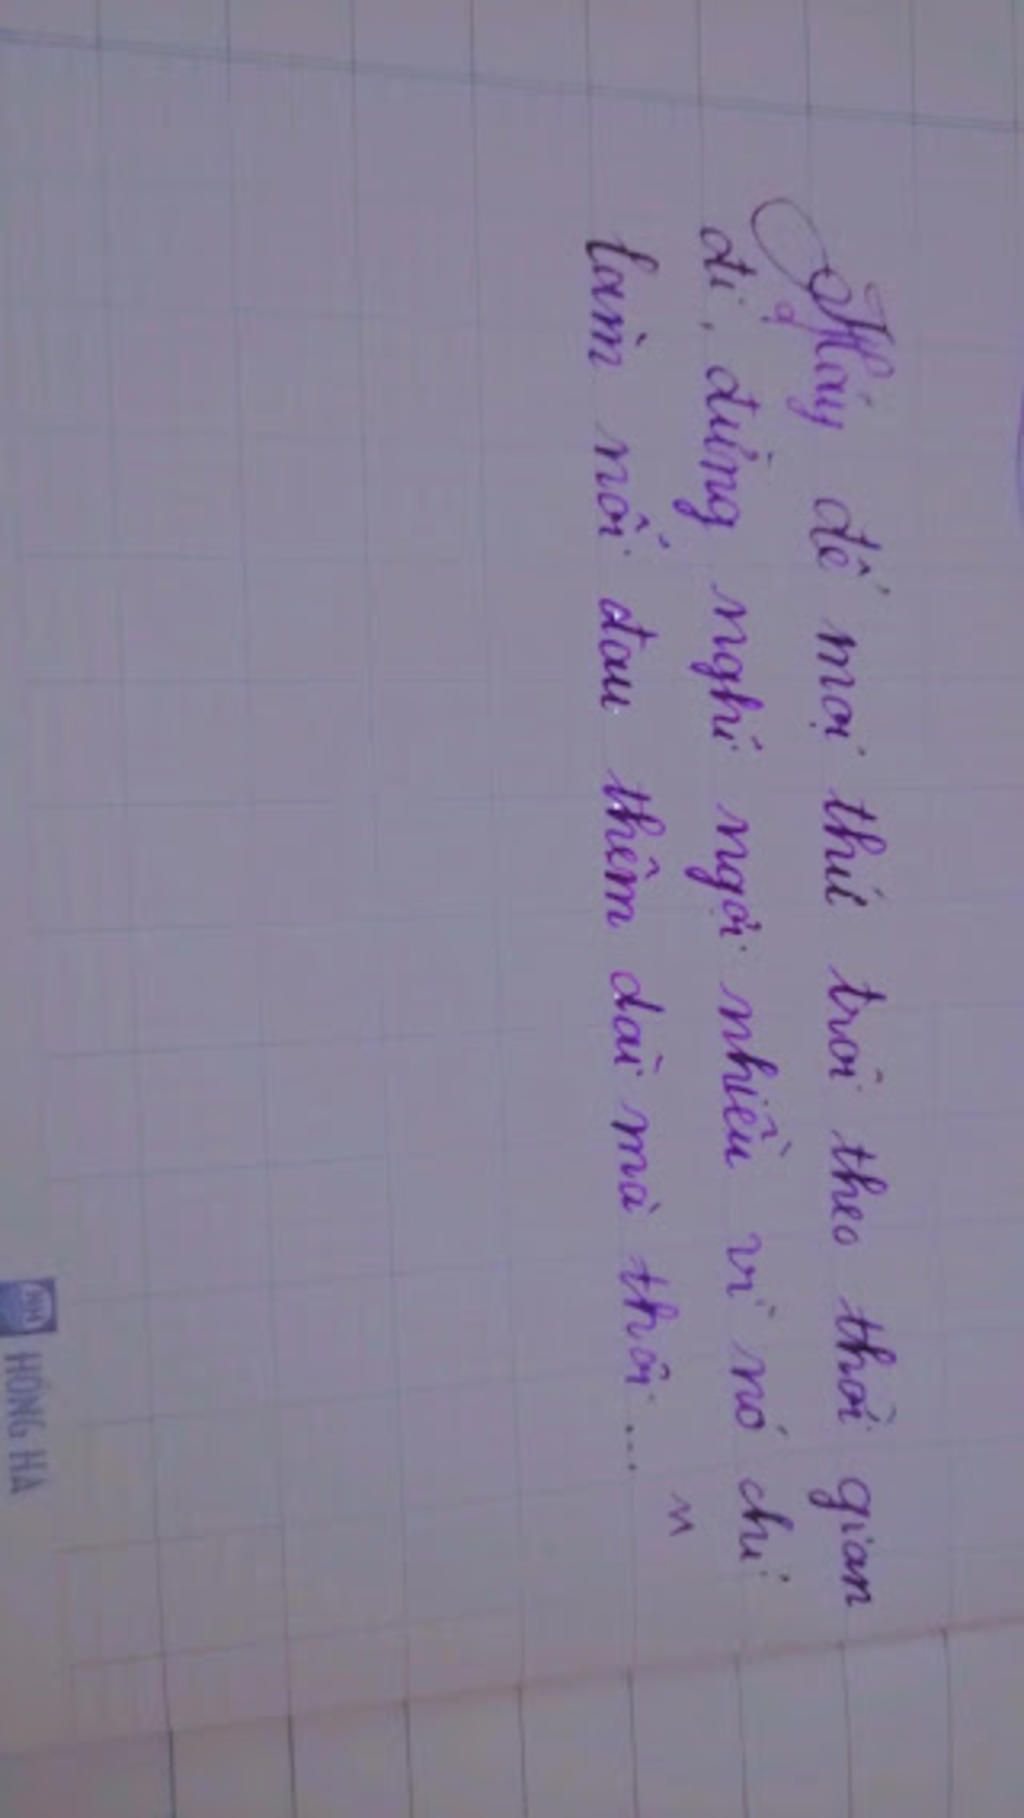 Hãy để mọi thứ trôi theo thời gian
đi, đừng nghĩ ngợi nhiều vì nó chỉ
làm nỗi đau thêm dài mà thôi...
HỒNG HÀ